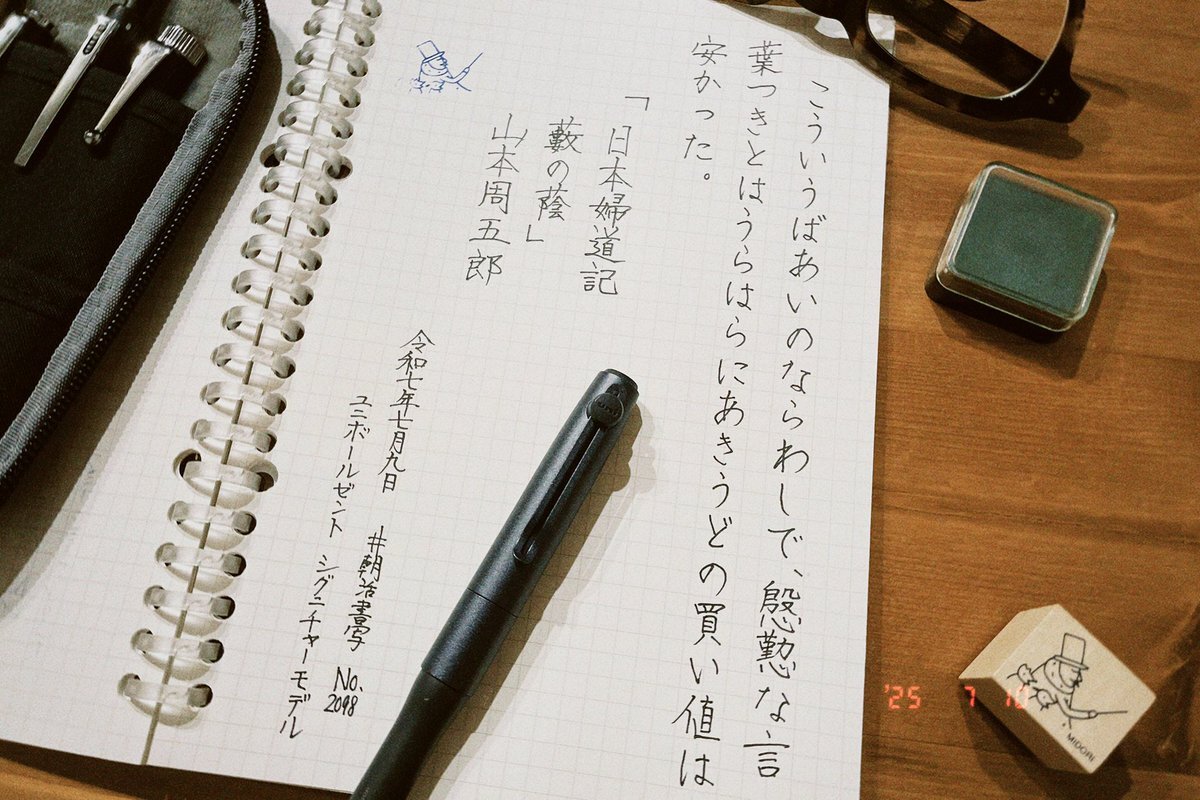 こういうばあいのならわしで、慇懃な言
葉つきとはうらはらにあきうどの買い値は
安かった。
「日本婦道記
藪の蔭」
山本周五郎
令和七年七月九日 #朝活書写 No.2098
ユニボールゼント シグニチャーモデル
'25 7 10
MIDORI